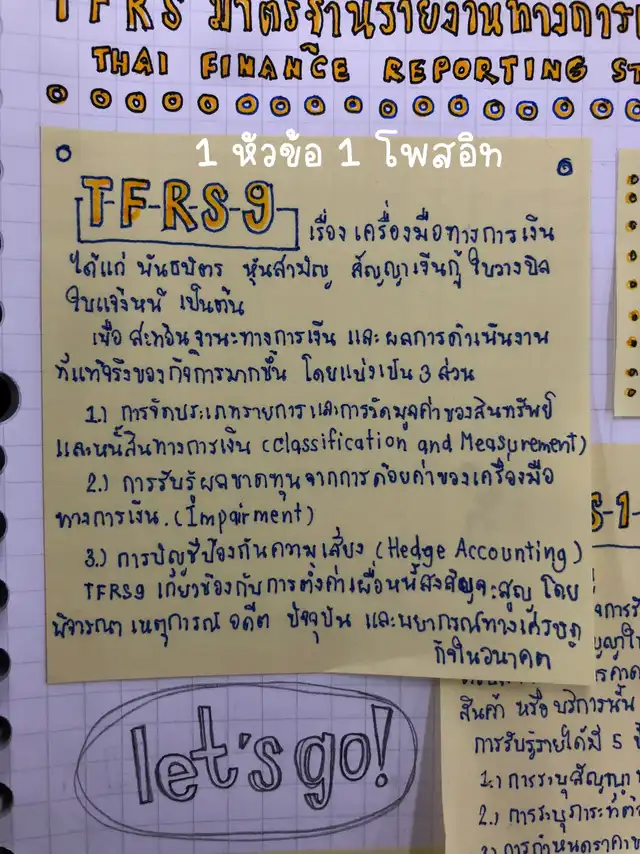 TFRS มาตรฐานรายงานทางการเ
THAI FINANCE REPORTING ST
1 หัวข้อ 1 โพสอิท
TFRS9 เรื่อง เครื่องมือทางการเงิน
ได้แก่ พันธบัตร หุ้นสามัญ สัญญาเงินกู้ ใบวางบิล
ใบแจ้งหนี้ เป็นต้น
เพื่อ สะท้อนฐานะทางการเงิน และผลการดำเนินงาน
ที่แท้จริงของกิจการมากขึ้น โดยแบ่งเป็น 3 ส่วน
1.) การจัดประเภทรายการและการวัดมูลค่าของสินทรัพย์
และหนี้สินทางการเงิน (Classification and Measurement)
2.) การรับรู้ผลขาดทุนจากการด้อยค่าของเครื่องมือ
ทางการเงิน. (Impairment)
3.) การบัญชีป้องกันความเสี่ยง (Hedge Accounting)
TFRS9 เกี่ยวข้องกับการตั้งค่าเผื่อหนี้สงสัยจะสูญ โดย
พิจารณา เหตุการณ์ อดีต ปัจจุบัน และพยากรณ์ทางเศรษฐ
กิจในอนาคต
let's go!
S-1-
สินค้า หรือบริการนั้น
การรับรู้รายได้มี 5 ขั้
1.) การระบุสัญญา
2.) การระบุภาระที่ต้
3.) การกำหนดราคา